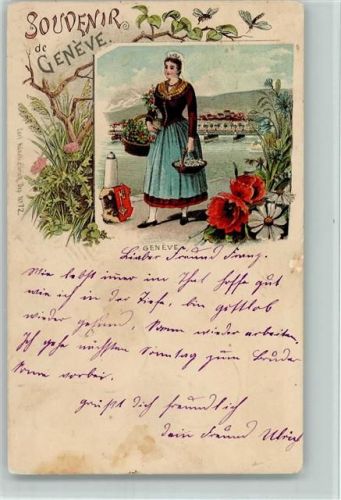 SOUVENIR
de
GENÈVE.
GENÈVE
Lieber Freund Franz.
Wie lebst immer im Thal hoffe gut
wie ich in der Tiefe, bin gottlob
wieder gesund, kann wieder arbeiten.
Ich gehe nächsten Sonntag zum Bruder
komme vorbei.
grüßt dich freundlich
dein Freund Ulrich